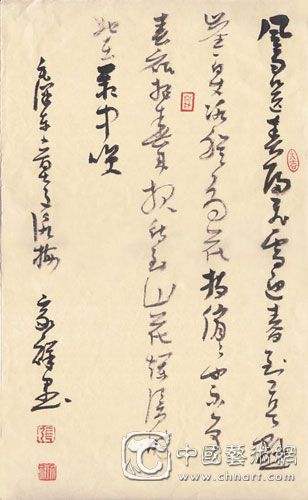 風雨送春歸飛雪迎春到已是懸
崖百丈冰猶有花枝俏俏也不爭
春只把春來報待到山花爛漫時
她在叢中笑
毛澤東卜算子詠梅 家祥書
中國藝術網
www.chnart.com